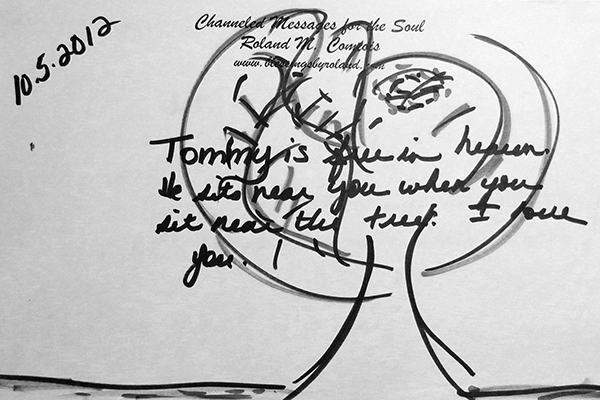 Channeled Messages for the Soul
Roland M. Comtois
www.blessingsbyroland.com
10.5.2012
Tommy is free in heaven.
He sits near you when you
sit near the tree. I love
you.